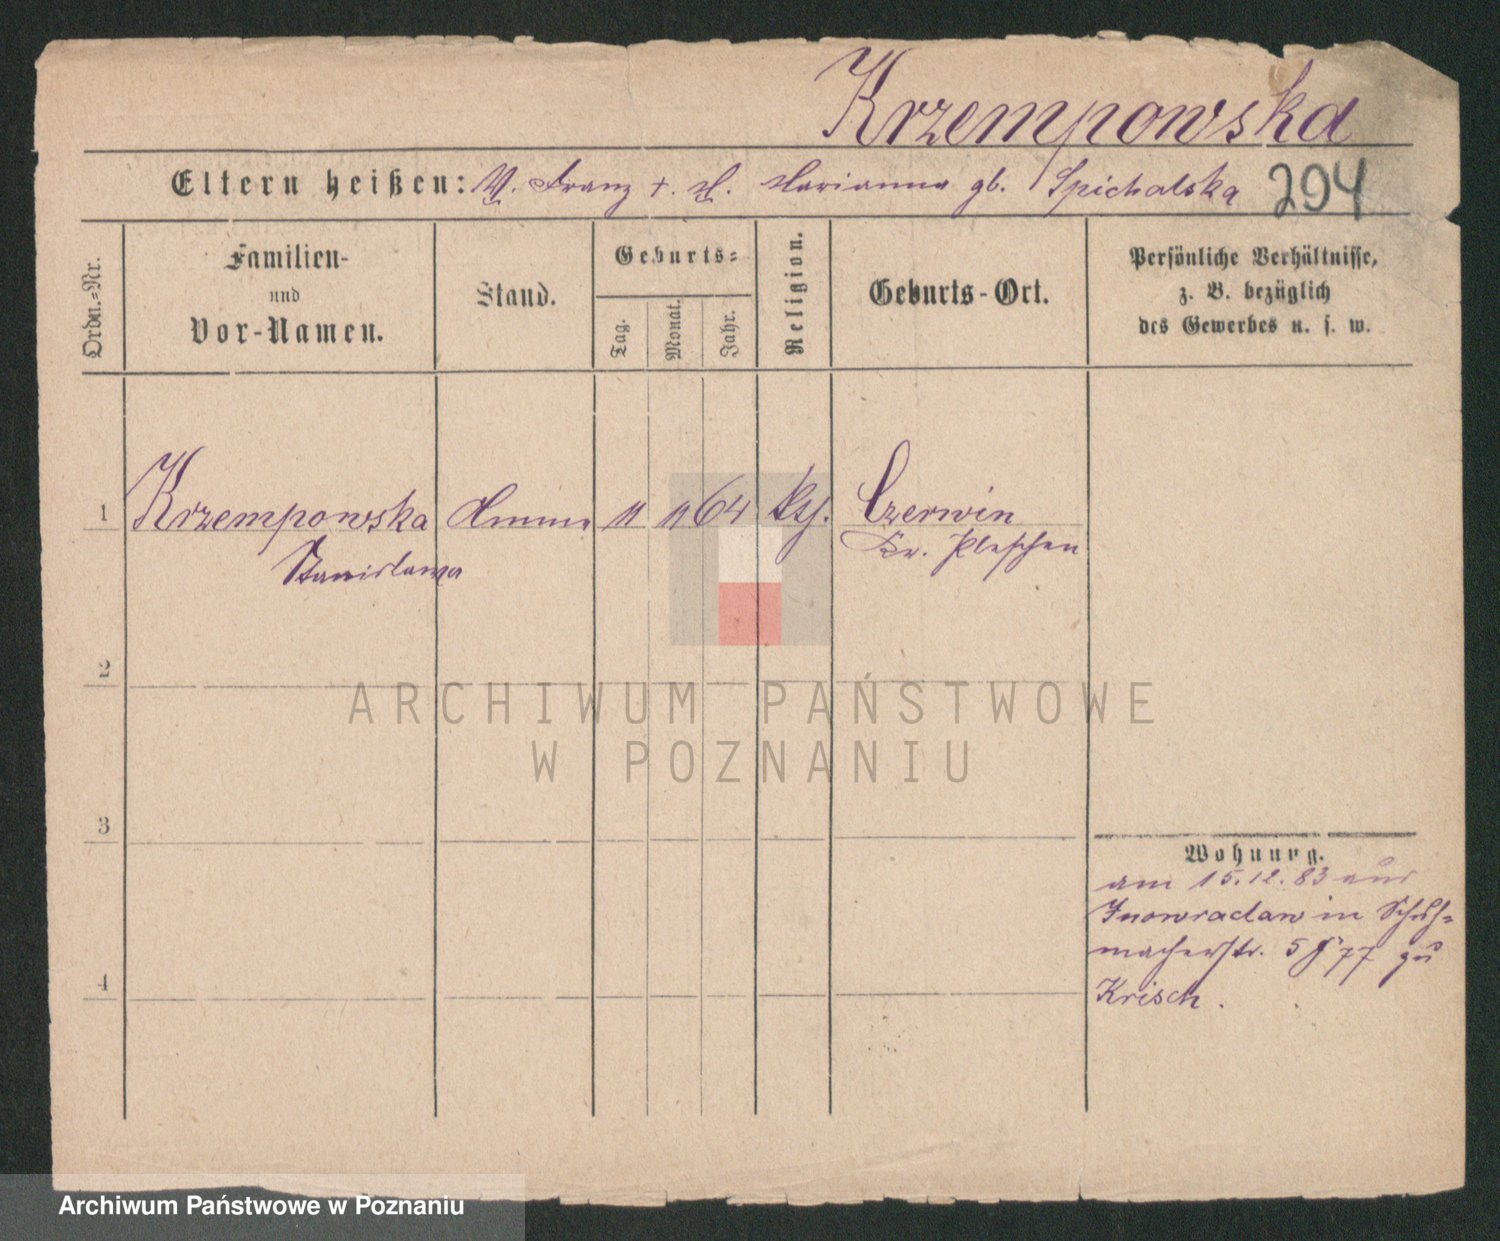 Krzempowska
Eltern heißen: V. Franz +. M. Marianna gb. Spichalska 294
Ordn.=Nr.
Familien-
und
Vor-Namen.
Stand.
Geburts=
Tag.
Monat.
Jahr.
Religion.
Geburts-Ort.
Persönliche Verhältnisse,
z. B. bezüglich
des Gewerbes u. s. w.
1 Krzempowska Amme 11 11 64 Czerwin
Stanislawa Kr. Pleschen
2
3
4
Wohnung.
am 15.12.83 aus
Inowraclaw in Schuh=
macherstr. 5 77 zu
Krisch.
ARCHIWUM PAŃSTWOWE
W POZNANIU
Archiwum Państwowe w Poznaniu